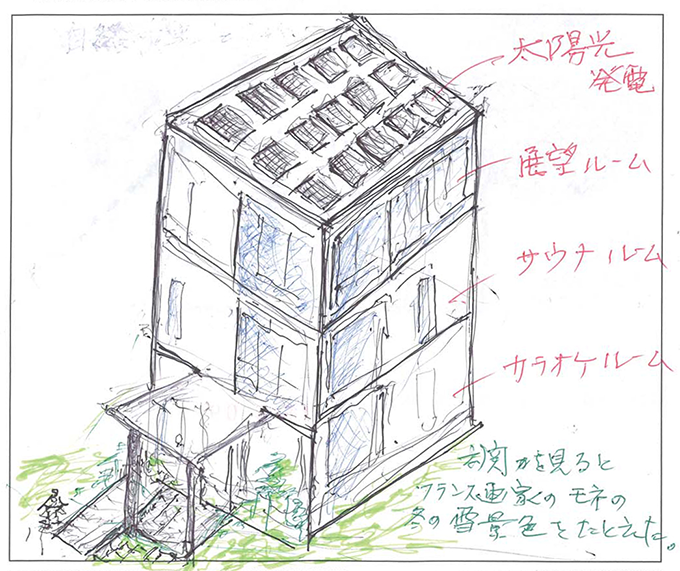 太陽光
発電
展望ルーム
サウナルーム
カラオケルーム
を見ると
フランス画家のモネの
冬の雪景色をたとえた。